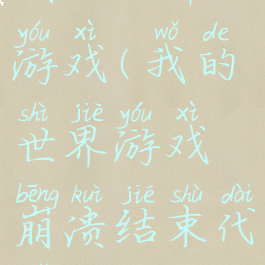 yóu xì wǒ de
游戏(我的
shì jiè yóu xì
世界游戏
bēng kuì jié shù dài
崩溃结束代